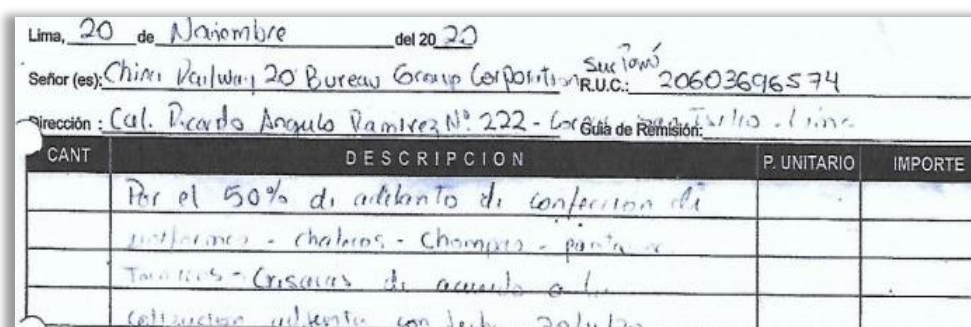 Lima, 20 de Noviembre del 20 20
Señor (es): China Railway 20 Bureau Group Corporation R.U.C.: 20603696574
Dirección : Cal. Ricardo Angulo Ramirez Nº. 222 - Guia de Remisión: San Isidro - Lima
CANT DESCRIPCION P. UNITARIO IMPORTE
Por el 50% de adelanto de confeccion de
uniformes - chalecos - Chompas -
Casacas de acuerdo a la
cotizacion adjunta con fecha 20/11/20